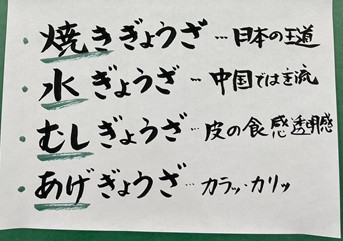 ・焼きぎょうざ…日本の王道
・水ぎょうざ…中国では主流
・むしぎょうざ…皮の食感透明感
・あげぎょうざ…カラッ・カリッ